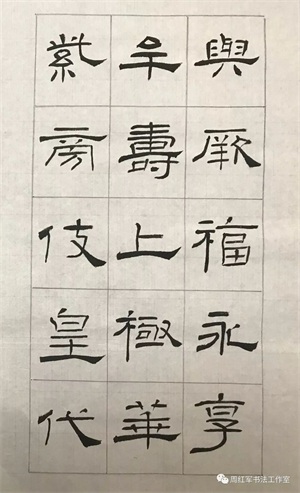 與厥福永享
牟壽上極華
紫旁伎皇代
周红军书法工作室